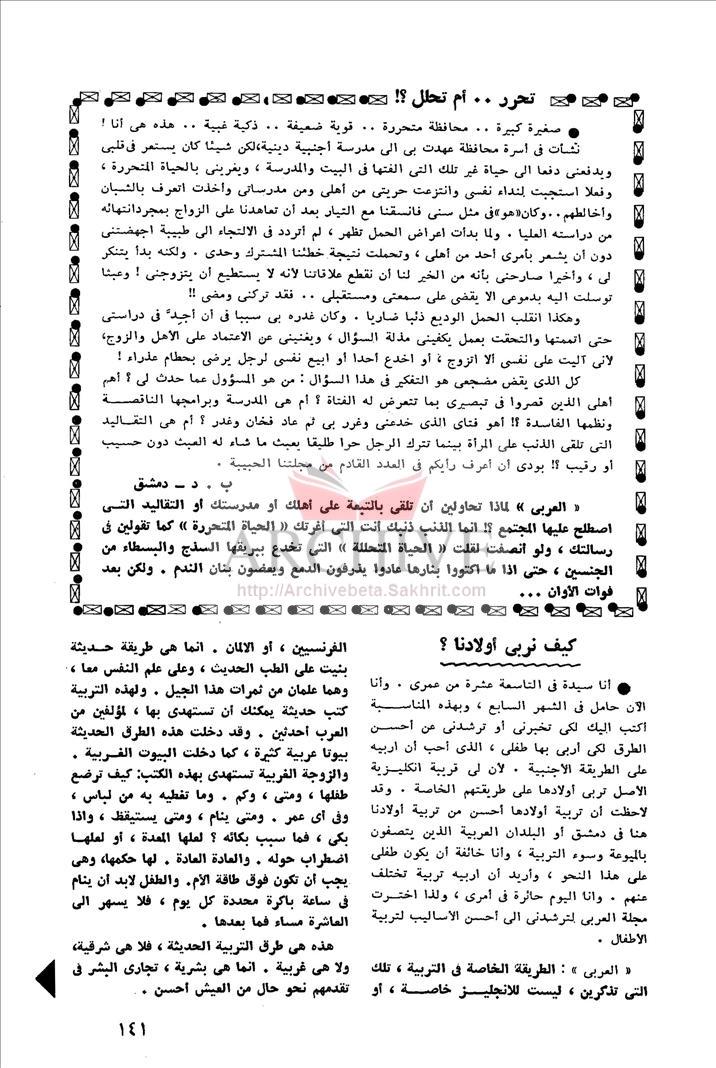 تحرر .. أم تحلل ؟!
● صغيرة كبيرة .. محافظة متحررة .. قوية ضعيفة .. ذكية غبية .. هذه هى أنا !
نشأت فى أسرة محافظة عهدت بى الى مدرسة أجنبية دينية،لكن شيئا كان يستعر فى قلبى
ويدفعنى دفعا الى حياة غير تلك التى الفتها فى البيت والمدرسة ، ويغرينى بالحياة المتحررة ،
وفعلا استجبت لنداء نفسى وانتزعت حريتى من أهلى ومن مدرساتى وأخذت اتعرف بالشبان
وأخالطهم..وكان«هو»فى مثل سنى فانسقنا مع التيار بعد أن تعاهدنا على الزواج بمجردانتهائه
من دراسته العليا . ولما بدأت اعراض الحمل تظهر ، لم أتردد فى الالتجاء الى طبيبة اجهضتنى
دون أن يشعر بأمرى أحد من أهلى ، وتحملت نتيجة خطئنا المشترك وحدى . ولكنه بدأ يتنكر
لى ، وأخيرا صارحنى بأنه من الخير لنا أن نقطع علاقاتنا لأنه لا يستطيع أن يتزوجنى ! وعبثا
توسلت اليه بدموعى الا يقضى على سمعتى ومستقبلى .. فقد تركنى ومضى !!
وهكذا انقلب الحمل الوديع ذئبا ضاريا . وكان غدره بى سببا فى أن أجِدَّ فى دراستى
حتى اتممتها والتحقت بعمل يكفينى مذلة السؤال ، ويغنينى عن الاعتماد على الأهل والزوج،
لأنى آليت على نفسى ألا اتزوج ، أو اخدع أحدا أو ابيع نفسى لرجل يرضى بحطام عذراء !
كل الذى يقض مضجعى هو التفكير فى هذا السؤال : من هو المسؤول عما حدث لى ؟ أهم
أهلى الذين قصروا فى تبصيرى بما تتعرض له الفتاة ؟ أم هى المدرسة وبرامجها الناقصـــة
ونظمها الفاسدة ؟! أهو فتاى الذى خدعنى وغرر بى ثم عاد فخان وغدر ؟ أم هى التقــاليد
التى تلقى الذنب على المرأة بينما تترك الرجل حرا طليقا يعبث ما شاء له العبث دون حسيب
أو رقيب ؟! بودى أن أعرف رأيكم فى العدد القادم من مجلتنا الحبيبة .
ب . د ــ دمشق
« العربى » لماذا تحاولين أن تلقى بالتبعة على أهلك أو مدرستك أو التقاليد التــى
اصطلح عليها المجتمع ؟! انما الذنب ذنبك أنت التى أغرتك « الحياة المتحررة » كما تقولين فى
رسالتك ، ولو انصفت لقلت « الحياة المتحللة » التى تخدع ببريقها السذج والبسطاء من
الجنسين ، حتى اذا ما اكتووا بنارها عادوا يذرفون الدمع ويعضون بنان الندم . ولكن بعد
فوات الأوان ...
ARCHIVE
http://Archivebeta.Sakhrit.com
كيف نربى أولادنا ؟
● أنا سيدة فى التاسعة عشرة من عمرى . وأنا
الآن حامل فى الشهر السابع ، وبهذه المناســـبة
أكتب اليك لكى تخبرنى أو ترشدنى عن أحسن
الطرق لكى أربى بها طفلى ، الذى أحب أن اربيه
على الطريقة الأجنبية . لأن لى قريبة انكليـزية
الأصل تربى أولادها على طريقتهم الخاصة . وقد
لاحظت أن تربية أولادها أحسن من تربية أولادنا
هنا فى دمشق أو البلدان العربية الذين يتصفون
بالميوعة وسوء التربية ، وأنا خائفة أن يكون طفلى
على هذا النحو ، وأريد أن اربيه تربية تختلف
عنهم . وانا اليوم حائرة فى أمرى ، ولذا اختـرت
مجلة العربى لترشدنى الى أحسن الاساليب لتربية
الأطفال .
« العربى » : الطريقة الخاصة فى التربية ، تلك
التى تذكرين ، ليست للانجليـــز خاصـــة ، أو
الفرنسيين ، أو الالمان . انما هى طريقة حــديثة
بنيت على الطب الحديث ، وعلى علم النفس معا ،
وهما علمان من ثمرات هذا الجيل . ولهذه التربية
كتب حديثة يمكنك أن تستهدى بها ، لمؤلفين من
العرب أحدثين . وقد دخلت هذه الطرق الحديثة
بيوتا عربية كثيرة ، كما دخلت البيوت الغــربية .
والزوجة الغربية تستهدى بهذه الكتب: كيف ترضع
طفلها ، ومتى ، وكم . وما تغطيه به من لباس ،
وفى أى عمر . ومتى ينام ، ومتى يستيقظ ، واذا
بكى ، فما سبب بكائه ؟ لعلها المعدة ، أو لعلهــا
اضطراب حوله . والعادة العادة . لها حكمها، وهى
يجب أن تكون فوق طاقة الأم. والطفل لابد أن ينام
فى ساعة باكرة محددة كل يوم ، فلا يسهر الى
العاشرة مساء فما بعدها .
هذه هى طرق التربية الحديثة ، فلا هى شرقية،
ولا هى غربية . انما هى بشرية ، تجارى البشر فى
تقدمهم نحو حال من العيش أحسن .
١٤١